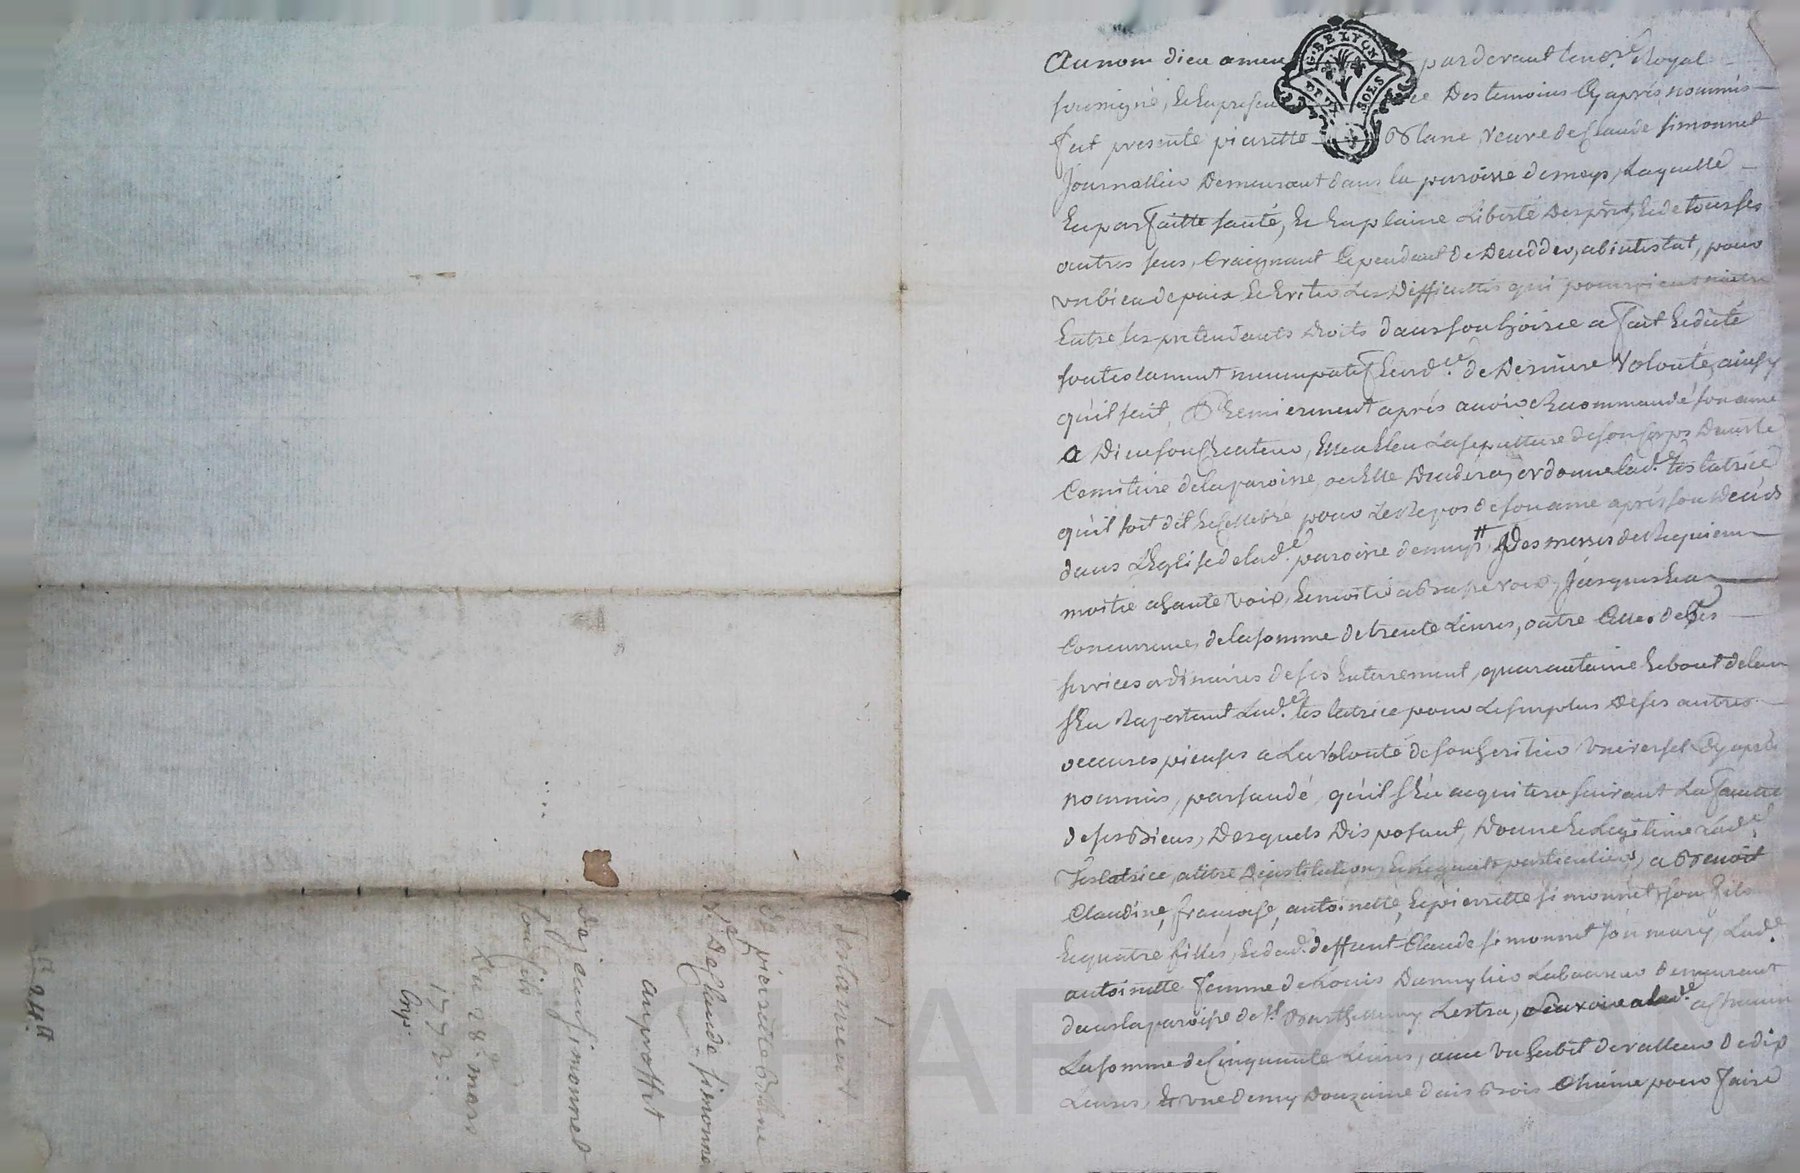 Au nom dieu amen par devant le no.re Royal
soussigné, et en presence des temoins Cy après nommés
fut presente pierrette Blanc veuve de Claude simonnet
Journallier Demeurant dans la paroisse de meys, Laquelle
En parfaitte santé, et En plaine Liberté Desprit, et de tous ses
autres sens, Craignant Cependant de Décéder, abintestat, pour
un bien de paix et Eviter Les Difficultés qui pourroient naitre
Entre les pretendants droits dans son hoirie a fait et dicté
son testament nuncupatif et ord.ce de Derniere Volonté, ainsy
qu'il suit, Premierement après avoir Recommandé son ame
a Dieu son Createur, Esleu La sepulture de son Corps Dans le
Cemitiere de la paroisse, ou Elle Decedera, ordonne lad.e testatrice
qu'il soit dit et Cellebré pour Le Repos de son ame après son Deceds
dans L'Eglise de lad.e paroisse de meys, Des messes de Requiem
moitié a haute Voix, et moitié a basse voix, Jusques a
Concurrance de la somme de trente Livres, outre Celles de ses
services ordinaires de ses Enterrement, quarantaine et bout de lan
s'En Raportant Lad.e testatrice pour Le surplus De ses autres
oeuvres pieuses a La Volonté de son heritier Universel Cy après
nommé, persuadé, qu'il s'En acquitera suivant La faculté
de ses Biens, Desquels Disposant, Donne et Legue lad.e
Testatrice, a titre D'institution, et Legats particuliers, a Benoit
Claudine, françoise, antoinette, et pierrette simonnet, son fils
Et quatre filles, et dud. deffunt Claude simonnet son mary, Lad.e
antoinette femme de Louis Laboureur demeurant
dans la paroisse de S.t Barthelemy Lestra, scavoir a lad.e
La somme de Cinquante Livres, avec un habit de valleur de dix
Livres, Et une demy Douzaine d'ais Bois Chaine pour faire
Testament
De pierrette Blanc
V.e De Claude simonnet
au proffit
de jean simonnet
son fils
Du 28.e mars
1773:
Exp.